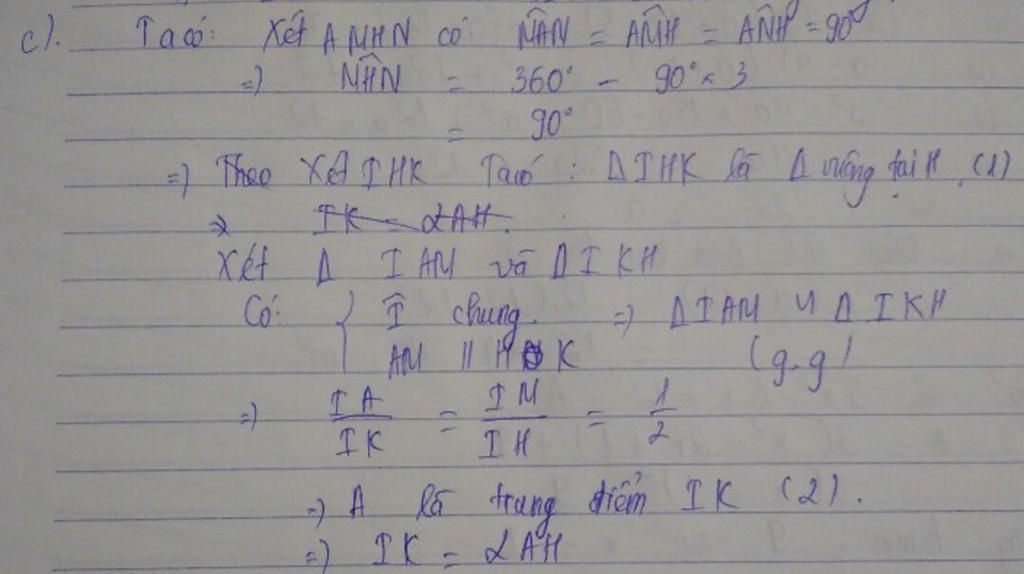 c). Ta có: Xét AMHN có M̂AN = AM̂H = AN̂H = 90°
=) MĤN = 360° - 90° × 3
= 90°
=) Theo Xét IHK Ta có : Δ IHK là Δ vuông tại H (1)
=> IK = 2AH.
Xét Δ IAM và Δ IKH
Có: { Î chung. =) Δ IAM ∽ Δ IKH
AM // HK (g.g)
=) IA/IK = IM/IH = 1/2
=) A là trung điểm IK (2).
=) IK = 2AH